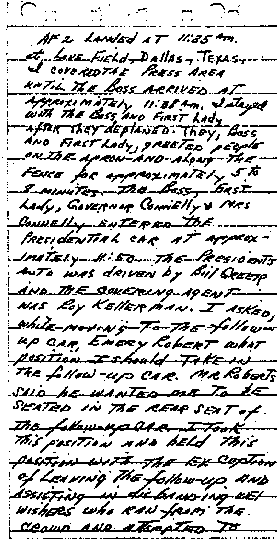 AF 2 LANDED AT 11:35 AM.
at, LOVE FIELD, DALLAS, TEXAS.
I COVERED THE PRESS AREA
UNTIL THE BOSS ARRIVED AT
APPROXIMATELY 11:38 AM. I stayed
WITH THE BOSS AND FIRST LADY
AFTER THEY DEPLANED. THEY, BOSS
AND FIRST LADY, GREETED PEOPLE
ON THE APRON AND ALONG THE
FENCE FOR APPROXIMATELY 5 TO
8 MINUTES. THE BOSS, FIRST
LADY, GOVERNOR CONNELLY & MRS
CONNELLY ENTERED THE
PRESIDENTIAL CAR AT APPROX-
IMATELY 11:50. THE PRESIDENTS
AUTO WAS DRIVEN BY Bill GREER
AND THE COVERING AGENT
WAS ROY KELLERMAN. I ASKED,
while MOVING TO THE follow-
UP CAR, EMERY ROBERT WHAT
POSITION I should TAKE IN
THE follow-up CAR. MR. ROBERTS
SAID HE WANTED ME TO BE
SEATED IN THE REAR SEAT OF
THE follow-up CAR. I TOOK
THIS POSITION AND HELD THIS
POSITION WITH THE EXCEPTION
of LEAVING THE follow-up AND
ASSISTING IN disbanding WEL
WISHERS WHO RAN FROM THE
CROWD AND ATTEMPTED TO